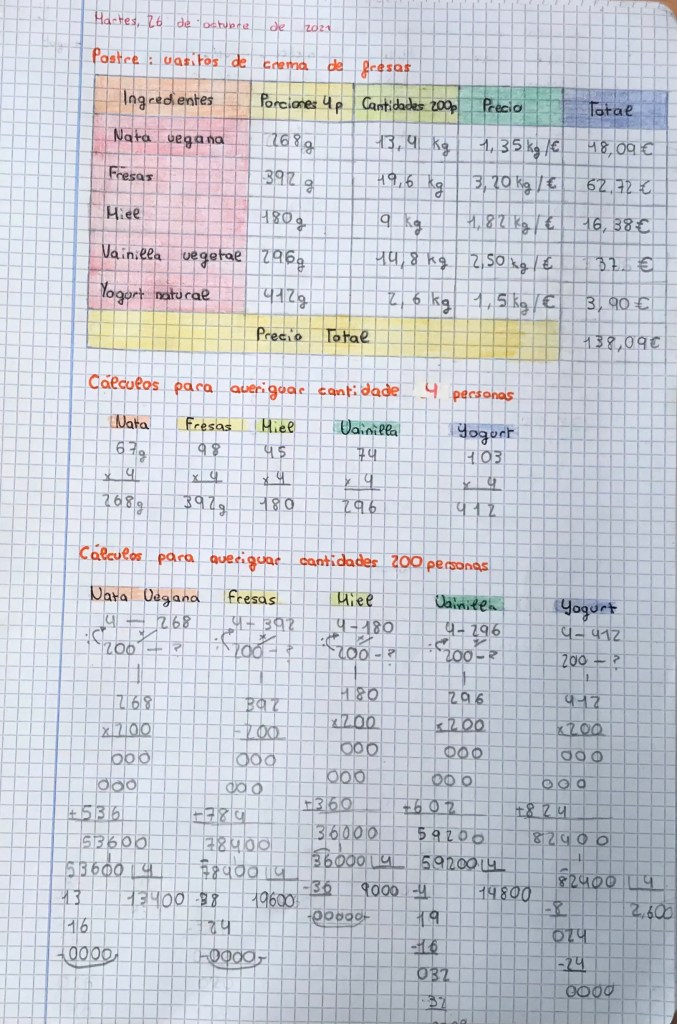 Martes, 26 de octubre de 2021
Postre: vasitos de crema de fresas
Ingredientes Porciones 4p Cantidades 200p Precio Total
Nata vegana 268g 13,4 kg 1,35 kg/€ 18,09€
Fresas 392 g 19,6 kg 3,20 kg/€ 62,72 €
Miel 180g 9 kg 1,82 kg/€ 16,38€
Vainilla vegetal 296g 14,8 kg 2,50 kg/€ 37 €
Yogurt natural 412g 2,6 kg 1,5 kg/€ 3,90 €
Precio Total 138,09€
Cálculos para averiguar cantidade 4 personas
Nata Fresas Miel Vainilla Yogurt
67g 98 45 74 103
x 4 x 4 x 4 x 4 x 4
268g 392g 180 296 412
Cálculos para averiguar cantidades 200 personas
Nata Vegana Fresas Miel Vainilla Yogurt
4 — 268 4 - 392 4 - 180 4 - 296 4 - 412
: 200 - ? : 200 - ? : 200 - ? : 200 - ? 200 - ?
268 392 180 296 412
x200 -200 x200 x200 x200
000 000 000 000 000
000 000 000 000 000
+536 +784 +360 +602 +824
53600 78400 36000 59200 82400
53600 4 78400 4 36000 4 59200 4 82400 4
13 13400 -38 19600 -36 9000 -4 14800 -8 2,600
16 24 -00000- 19 024
-0000- -0000- -16 -24
032 0000
32